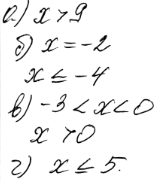 а) x > 9
б) x = -2
x ≤ -4
в) -3 < x < 0
x > 0
г) x ≤ 5.